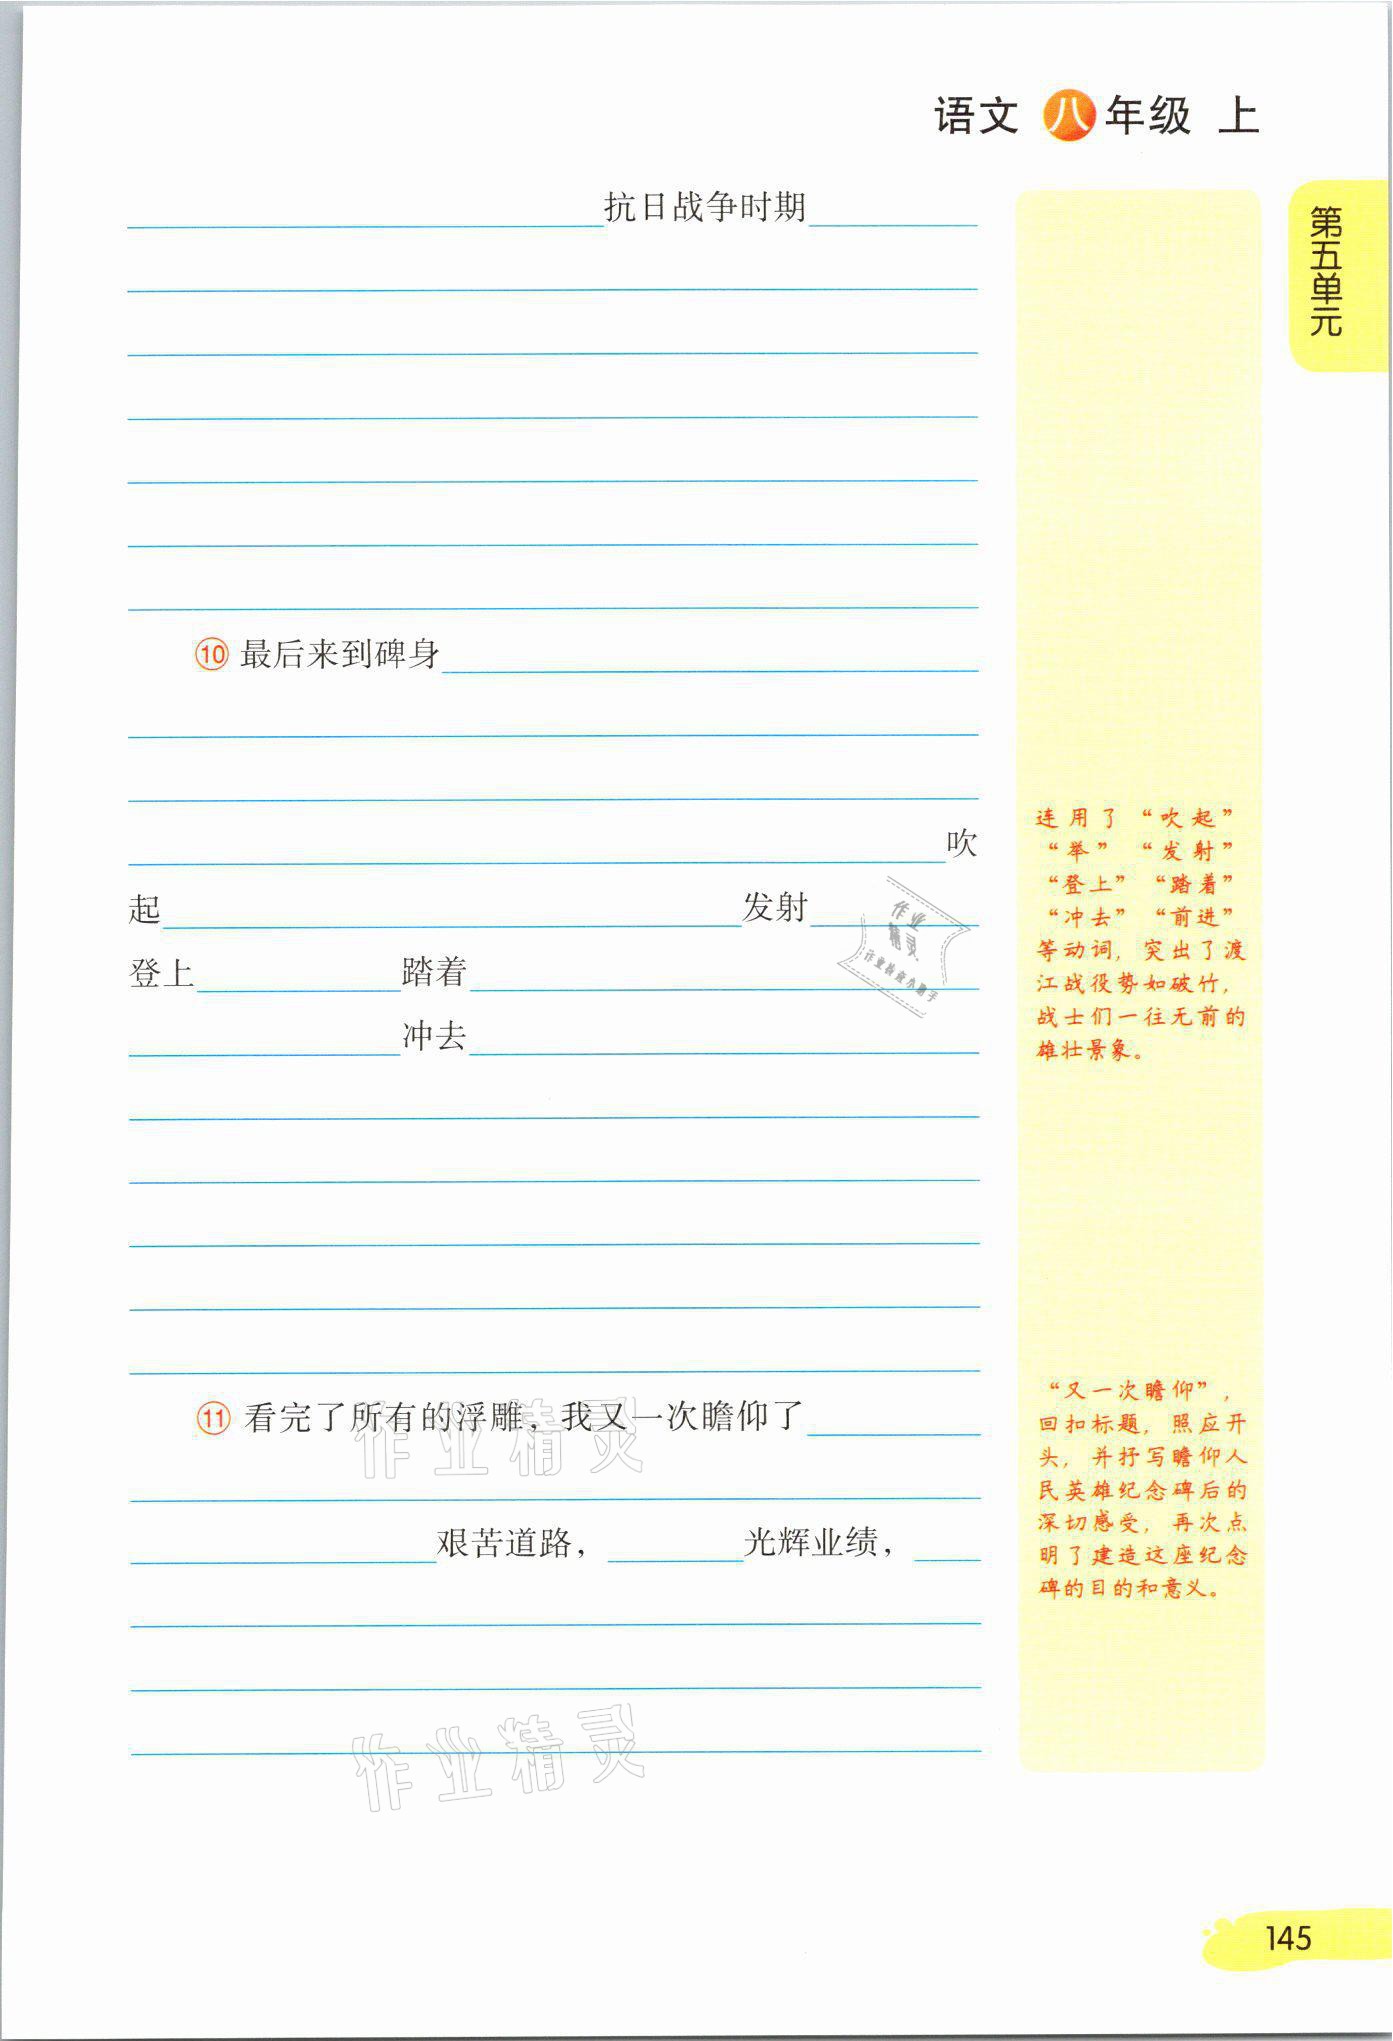 语文 八年级 上
第五单元
抗日战争时期
⑩ 最后来到碑身
吹
起 发射
登上 踏着
冲去
连用了“吹起”
“举”“发射”
“登上”“踏着”
“冲去”“前进”
等动词，突出了渡
江战役势如破竹，
战士们一往无前的
雄壮景象。
⑪ 看完了所有的浮雕，我又一次瞻仰了
艰苦道路， 光辉业绩，
“又一次瞻仰”，
回扣标题，照应开
头，并抒写瞻仰人
民英雄纪念碑后的
深切感受，再次点
明了建造这座纪念
碑的目的和意义。
作业
精灵
作业检查小助手
作业精灵
作业精灵
145